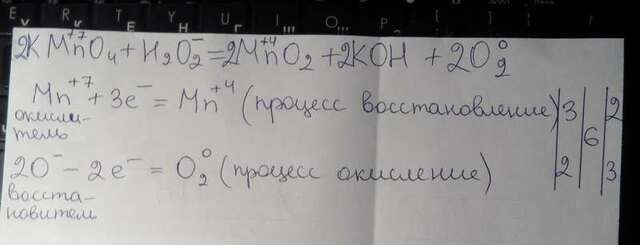 2KMn⁺⁷O₄+H₂O₂⁻=2Mn⁺⁴O₂+2KOH+2O₂⁰
Mn⁺⁷+3e⁻=Mn⁺⁴(процесс восстановление)|3| |2
окисли-
тель
6
2O⁻-2e⁻=O₂⁰(процесс окисление) |2| |3
восста-
новитель